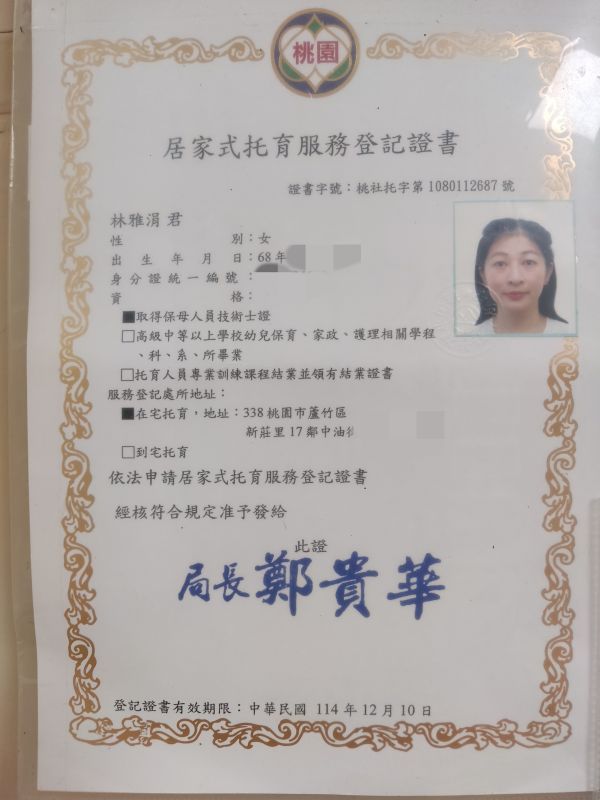 桃園
居家式托育服務登記證書
證書字號：桃社托字第1080112687號
林雅涓 君
性別：女
出生年月日：68年
身分證統一編號：
資格：
■取得保母人員技術士證
□高級中等以上學校幼兒保育、家政、護理相關學程
、科、系、所畢業
□托育人員專業訓練課程結業並領有結業證書
服務登記處所地址：
■在宅托育，地址：338桃園市蘆竹區
新莊里17鄰中油街
□到宅托育
依法申請居家式托育服務登記證書
經核符合規定准予發給
此證
局長鄭貴華
登記證書有效期限：中華民國 114年12月10日